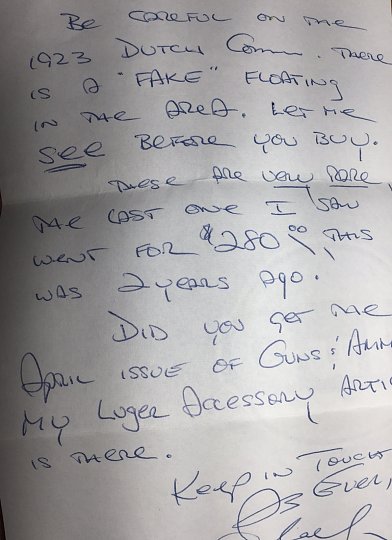 BE CAREFUL ON THE
1923 DUTCH COMM. THERE
IS A "FAKE" FLOATING
IN THE AREA. LET ME
SEE BEFORE YOU BUY.
THESE ARE VERY RARE
THE LAST ONE I SAW
WENT FOR $280.00 THIS
WAS 2 YEARS AGO.
DID YOU GET THE
APRIL ISSUE OF GUNS &
MY LUGER ACCESSORY
IS THERE.
KEEP IN TOUCH
AS EVER,